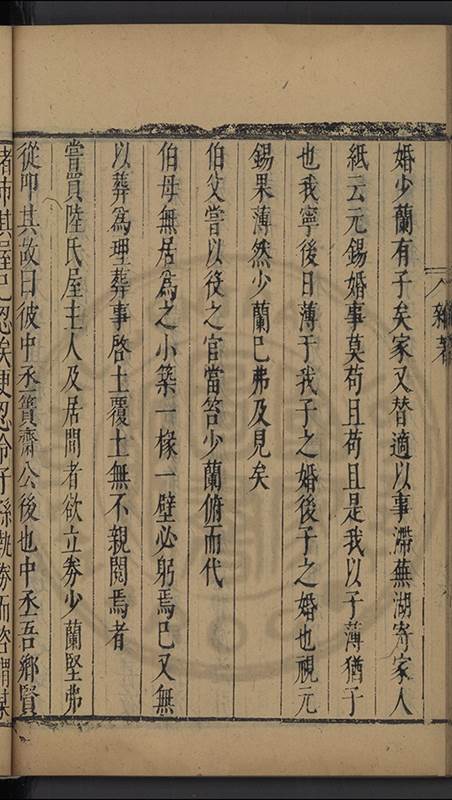 婚少蘭有子矣家又替適以事滯蕪湖寄家人
紙云元錫婚事莫苟且苟且是我以子薄猶子
也我寧後日薄于我子之婚後子之婚也視元
錫果薄然少蘭已弗及見矣
伯父嘗以役之官當笞少蘭俯而代
伯母無居為之小築一椽一壁必躬焉已又無
以葬為理葬事啓土覆土無不親閱焉者
嘗買陸氏屋主人及居間者欲立券少蘭堅弗
從叩其故曰彼中丞簣齋公後也中丞吾鄉賢
者而其屋已忍矣更忍令子孫執券而